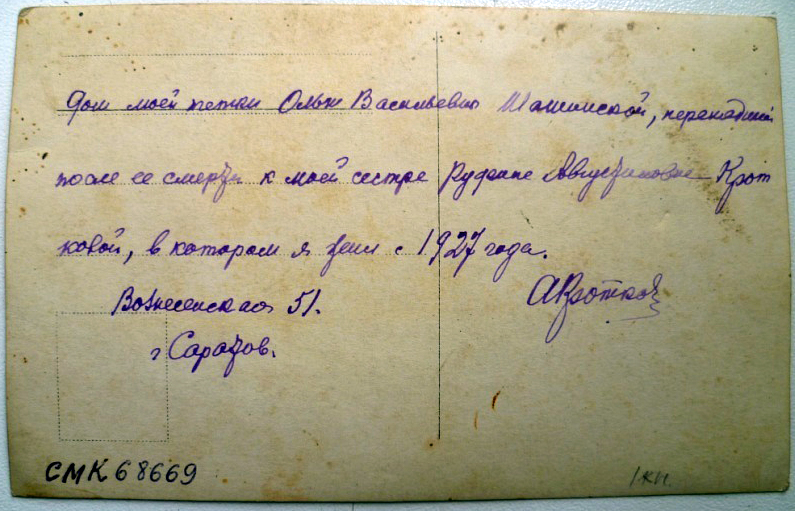 Дом моей тетки Ольги Васильевны, перешедший
после ее смерти к моей сестре Руфине Августиновне Крот
ковой, в котором я жил с 1927 года.
Вознесенская 51.
АКротков
г Саратов.
СМК 68669
1 кп.